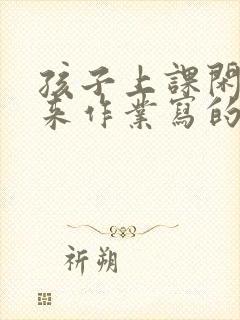 孩子上課閑
来作業寫的
祈朔